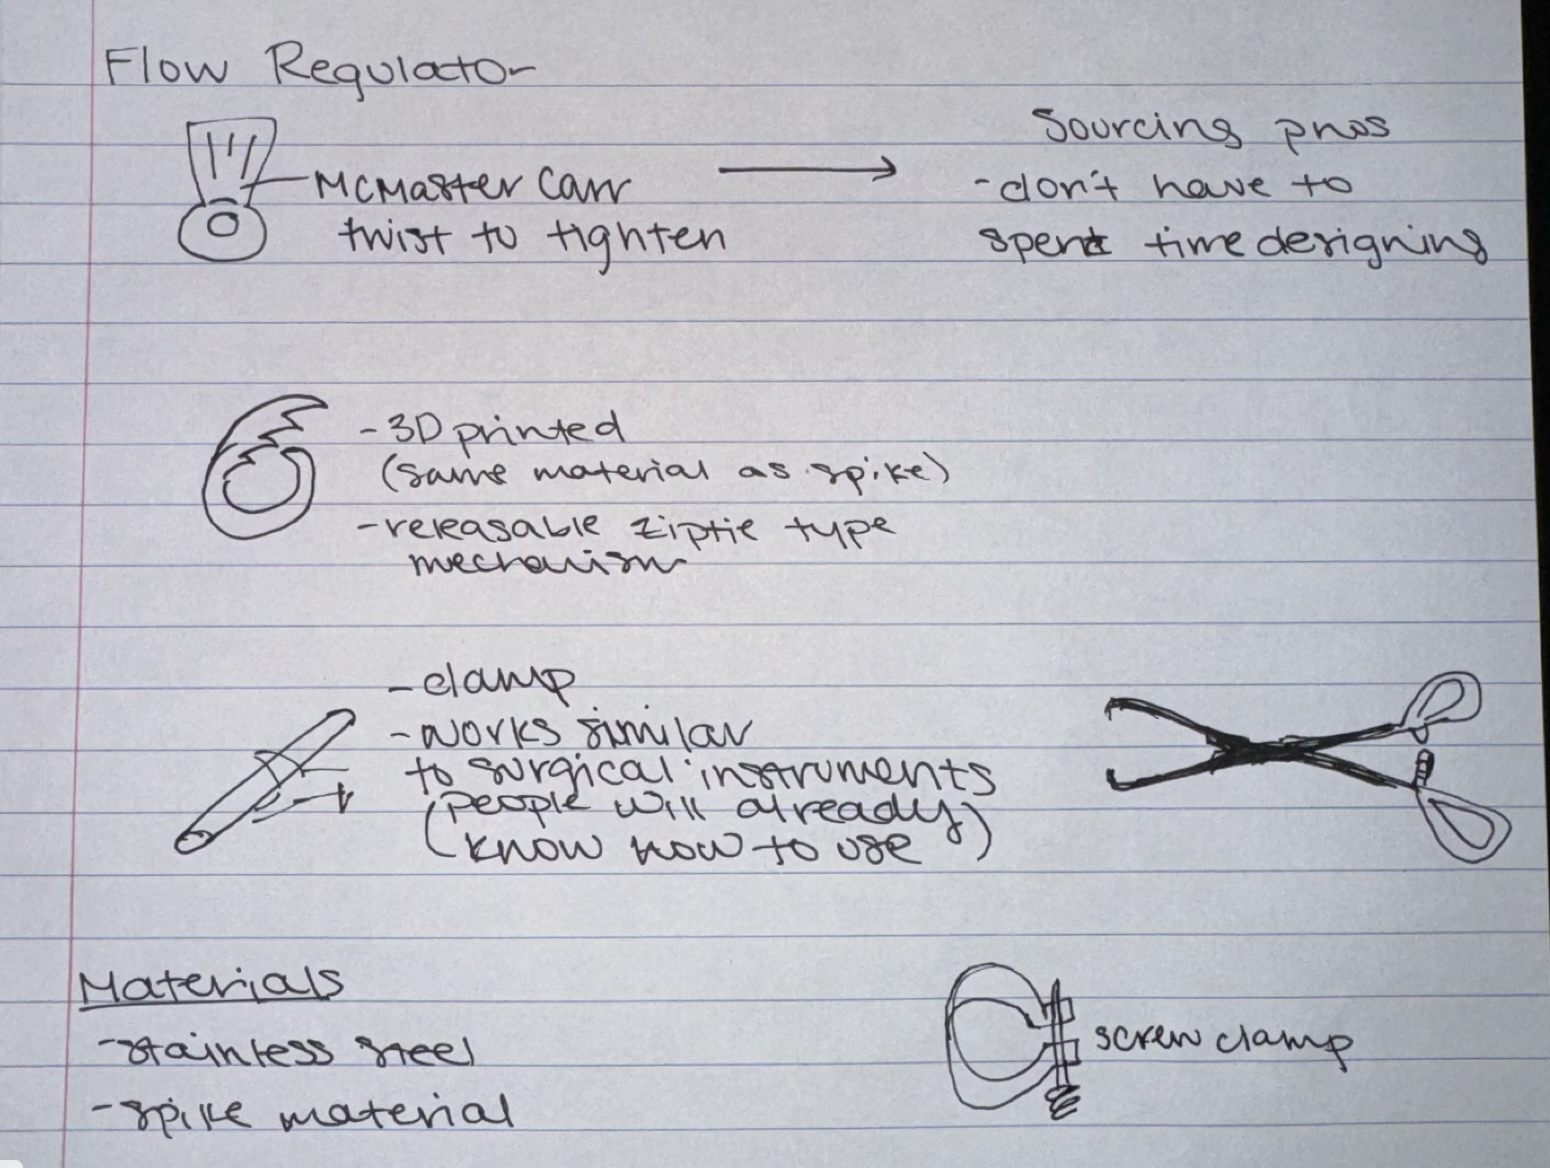 Flow Regulator
McMaster Carr
twist to tighten
Sourcing pros
-don't have to
spent time designing
-3D printed
(same material as spike)
-releasable ziptie type
mechanism
-clamp
-works similar
to surgical instruments
(people will already)
(know how to use)
Materials
-stainless steel
-spike material
screw clamp